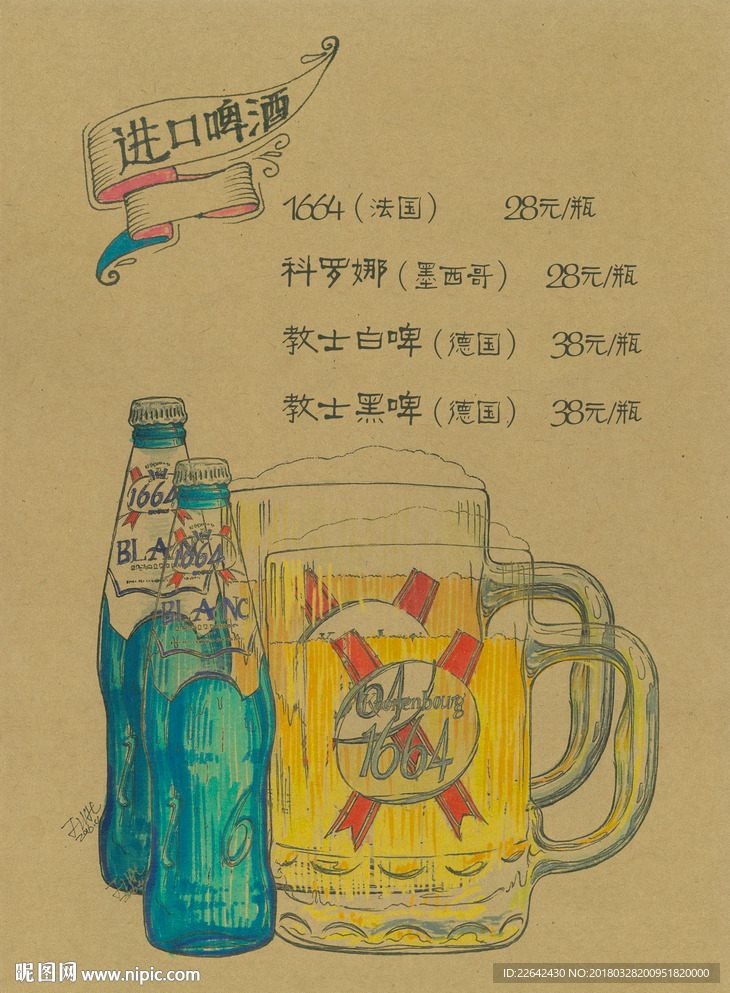 进口啤酒
1664（法国） 28元/瓶
科罗娜（墨西哥） 28元/瓶
教士白啤（德国） 38元/瓶
教士黑啤（德国） 38元/瓶
1664
BLA
1664
BLANC
Kronenbourg
1664
16
昵图网 www.nipic.com
ID:22642430 NO:20180328200951820000